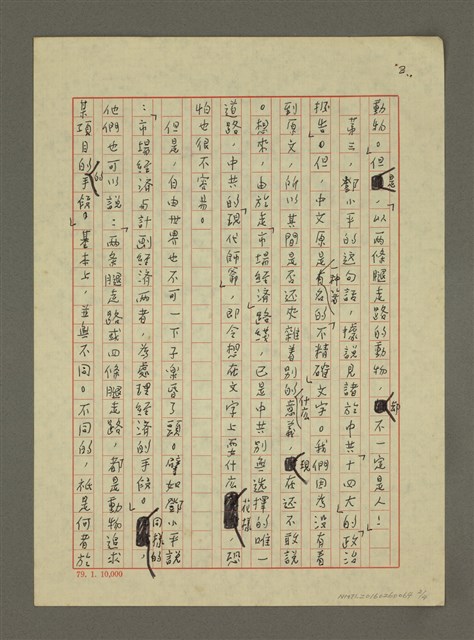 "3"
動物。但是,以兩條腿走路的動物,都不一定是人!」
第三,鄧小平的這句話,據說見諸於中共「十四大」的政治
報告。但,中文原是「一種著有名的不精確」文字。我們因為沒有看
到原文,所以其間是否还夾雜着別的什麼意義,現在还不敢說
。想來,由於走「市場經濟」路綫,已是中共別無選擇的唯一
道路,中共的「現代師爺」,即令想在文字上耍什么花樣,恐
怕也很不容易。
但是,自由世界也不可一下子樂昏了頭。譬如鄧小平說
:「市場經濟与計画經濟兩者,為處理經濟的手段。」同樣的,
他們也可以說:「兩条腿走路或四條腿走路,都是動物追求
某項目的的手段。」基本上,並無不同。不同的,祇是何者於
79. 1. 10,000